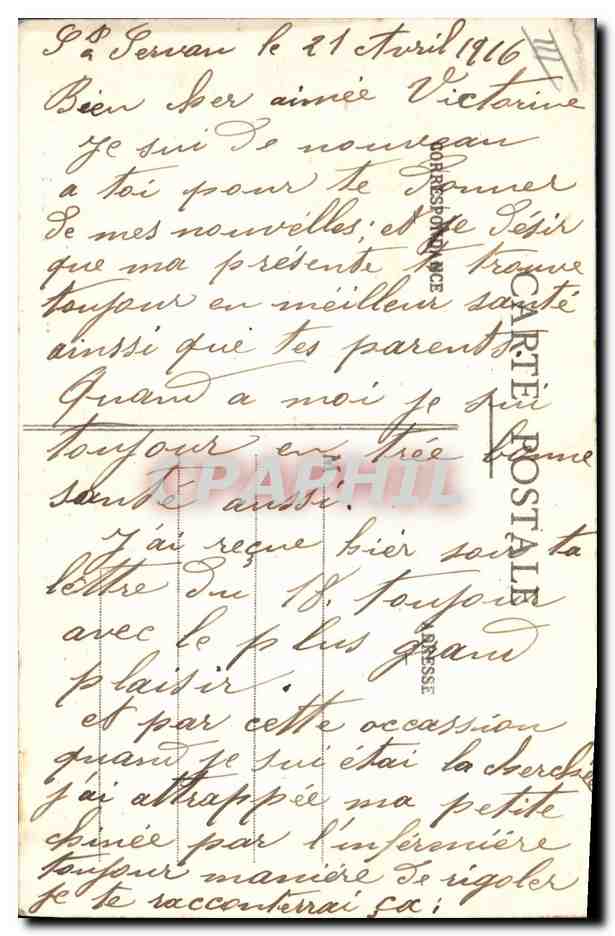 St Servan le 21 Avril 1916
Bien cher aimée Victorine
Je sui de nouveau
a toi pour te donner
de mes nouvelles; et je désir
que ma présente te trouve
toujour en méilleur santé
ainssi que tes parents.
Quand a moi je sui
toujour en trée bonne
santé aussi.
J'ai reçue hièr soir ta
lettre du 18. toujour
avec le plus grand
plaisir.
et par cette occassion
quand je sui étai la cherchée
j'ai attrappée ma petite
chinée par l'inféreniére
toujour maniére de rigoler
je te racconterrai ça:
CORRESPONDANCE
CARTE POSTALE
ADRESSE
M
CPAPHIL